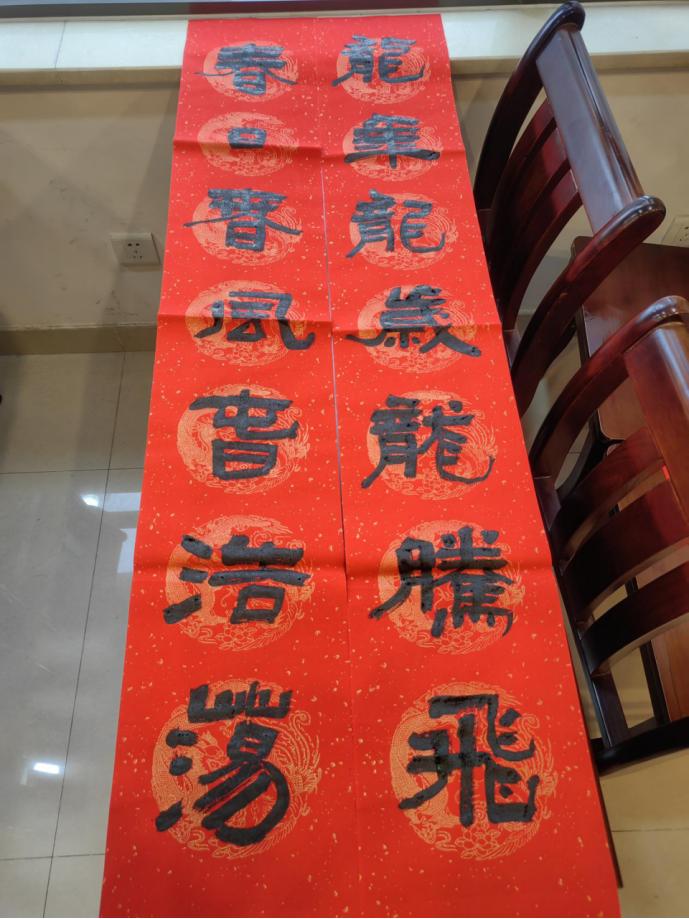 龍年龍歲龍騰飛
春日春風春浩蕩